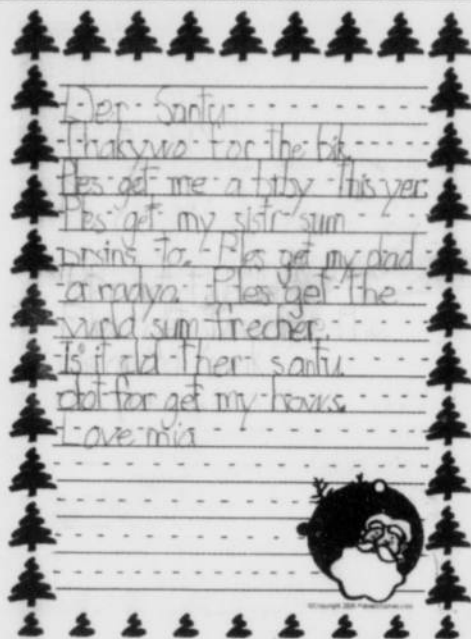 Der Santu
thakywo for the bik.
Ples get me a biby this yer.
Ples get my sistr sum
prsins to. Ples get my dad
a radyo. Ples get the
wurld sum frecher.
Is it cld ther santu.
dot for get my hows.
Love mia